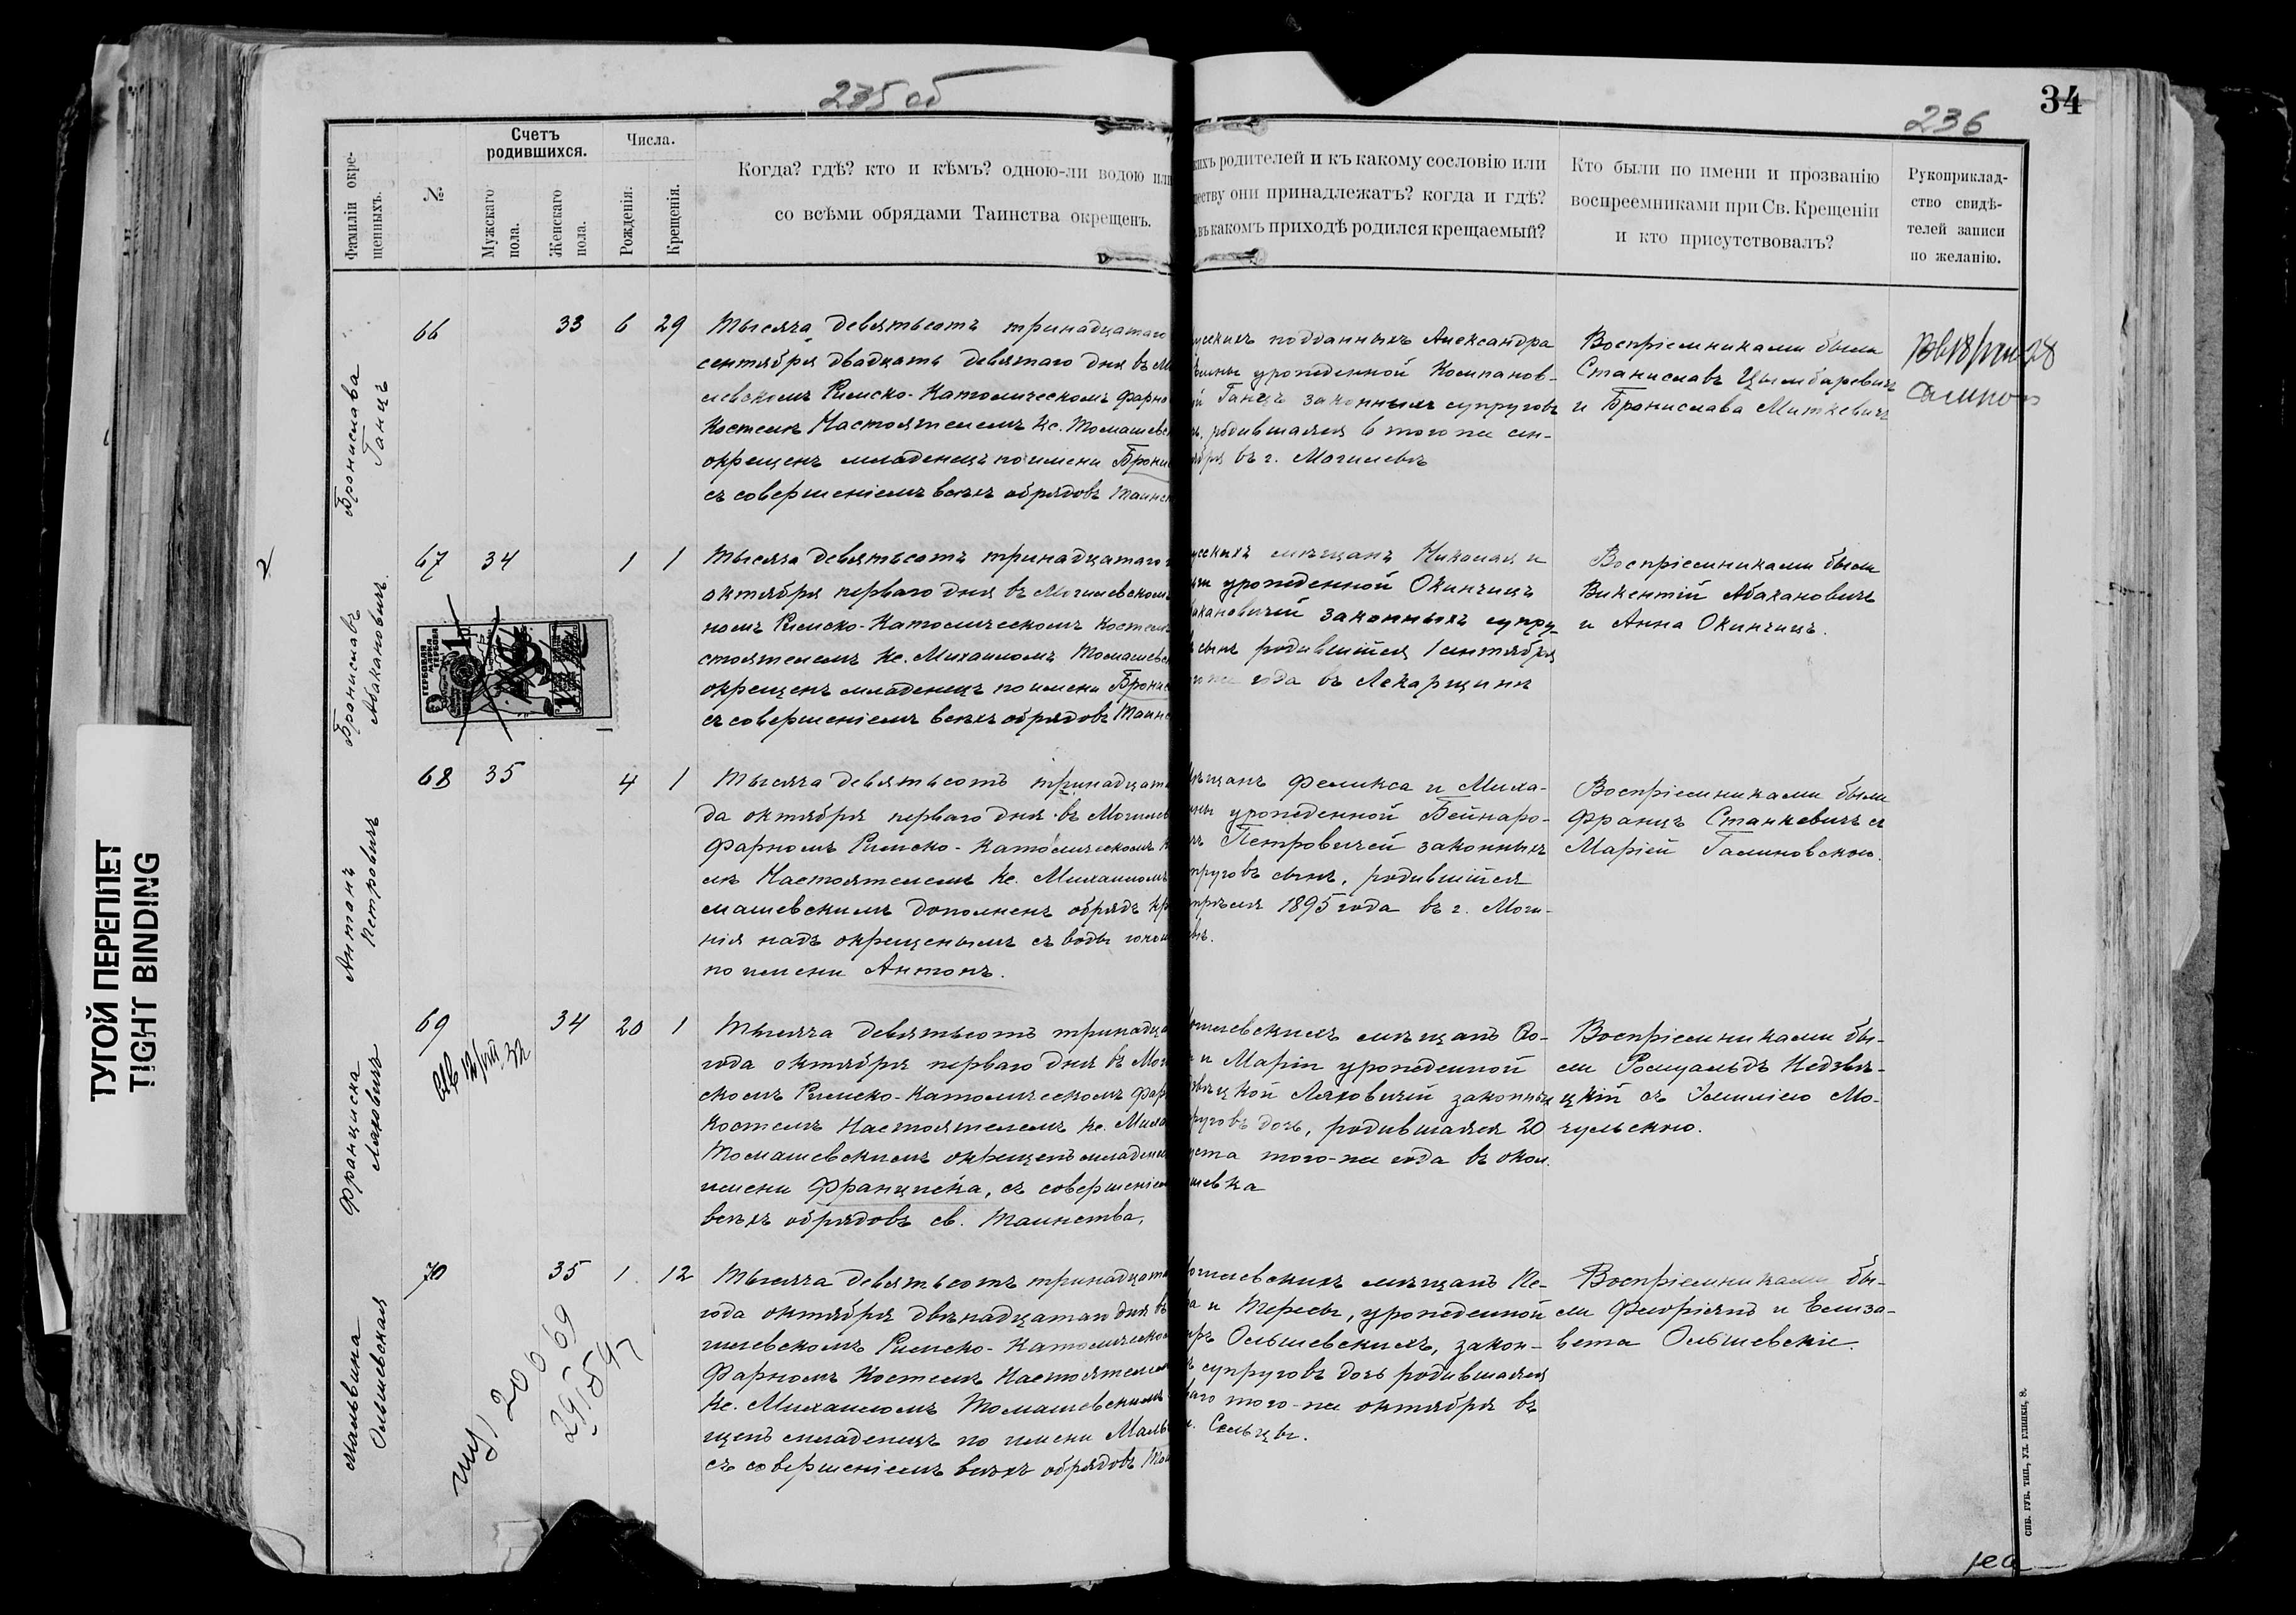 235 об
34
236
ТУГОЙ ПЕРЕПЛЕТ
TIGHT BINDING
Фамиліи окре-
щенныхъ.
№
Счетъ
родившихся.
Мужскаго
пола.
Женскаго
пола.
Числа.
Рожденія.
Крещенія.
Когда? гдѣ? кто и кѣмъ? одною-ли водою или
со всѣми обрядами Таинства окрещенъ.
родителей и къ какому сословію или
они принадлежатъ? когда и гдѣ?
въ какомъ приходѣ родился крещаемый?
Кто были по имени и прозванію
воспреемниками при Св. Крещеніи
и кто присутствовалъ?
Рукоприклад-
ство свидѣ-
телей записи
по желанію.
Бронислава
Ганцъ
66 33 6 29
Тысяча девятьсотъ тринадцатаго
сентября двадцать девятаго дня въ
Римско-Католическомъ Фарно
Костелѣ Настоятелемъ Кс.
окрещенъ младенецъ по имени Брони
съ совершеніемъ всѣхъ обрядовъ Таинс
подданныхъ Александра
урожденной Компанов-
Ганцъ законныхъ супруговъ
родившаяся 6 того же сен-
въ г. Могилевѣ
Воспріемниками были
Станиславъ Цымбаревичъ
и Бронислава Миткевичъ
Брониславъ
Абакановичъ
67 34 1 1
Тысяча девятьсотъ тринадцатаго
октября перваго дня въ Могилевскомъ
номъ Римско-Католическомъ Костелѣ
стоятелемъ Кс. Михаиломъ Томашевс
окрещенъ младенецъ по имени Брони
съ совершеніемъ всѣхъ обрядовъ Таин
мѣщанъ Николая и
урожденной Окинчицъ
законныхъ супру-
сынъ родившійся 1 сентября
года въ Лекарщинѣ
Воспріемниками были
Викентій Абакановичъ
и Анна Окинчицъ.
ГЕРБОВАЯ
МАРКА
Антонъ
Петровичъ
68 35 4 1
Тысяча девятьсотъ тринадцата
да октября перваго дня въ Могилев
Фарномъ Римско-Католическомъ К
лѣ Настоятелемъ Кс. Михаиломъ
машевскимъ дополненъ обрядъ кр
нія надъ окрещенымъ съ воды
по имени Антонъ.
Феликса и Миха-
урожденной Бейнаро-
Петровичей законныхъ
сынъ, родившійся
1895 года въ г. Моги-
Воспріемниками были
Францъ Станкевичъ съ
Маріей Галиновскою.
Франциска
Ляховичъ
69 34 20 1
Тысяча девятьсотъ тринадца
года октября перваго дня въ Мог
скомъ Римско-Католическомъ Фар
Костелѣ Настоятелемъ Кс. Миха
Томашевскимъ окрещенъ младене
имени Франциска, съ совершеніем
всѣхъ обрядовъ св. Таинства.
мѣщанъ
и Маріи урожденной
Ляховичей законных
дочь, родившаяся 20
того-же года въ окол.
Воспріемниками бы-
ли Ромуальдъ Недзвѣ-
цкій съ Эмиліею Мо-
чульскою.
Мальвина
Ольшевская
70 35 1 12
20669
Тысяча девятьсотъ тринадцата
года октября двѣнадцатаго дня въ
гилевскомъ Римско-Католическом
Фарномъ Костелѣ Настоятелем
Кс. Михаиломъ Томашевскимъ
щенъ младенецъ по имени Маль
съ совершеніемъ всѣхъ обрядовъ
мѣщанъ
и Терезы, урожденной
Ольшевскихъ, закон-
супруговъ дочь родившаяся
того-же октября въ
Сельцы.
Воспріемниками бы-
ли Флоріянъ и Елиза-
вета Ольшевскіе.
СПБ. ГУБ. ТИП., УЛ. ГЛИНКИ, 8.